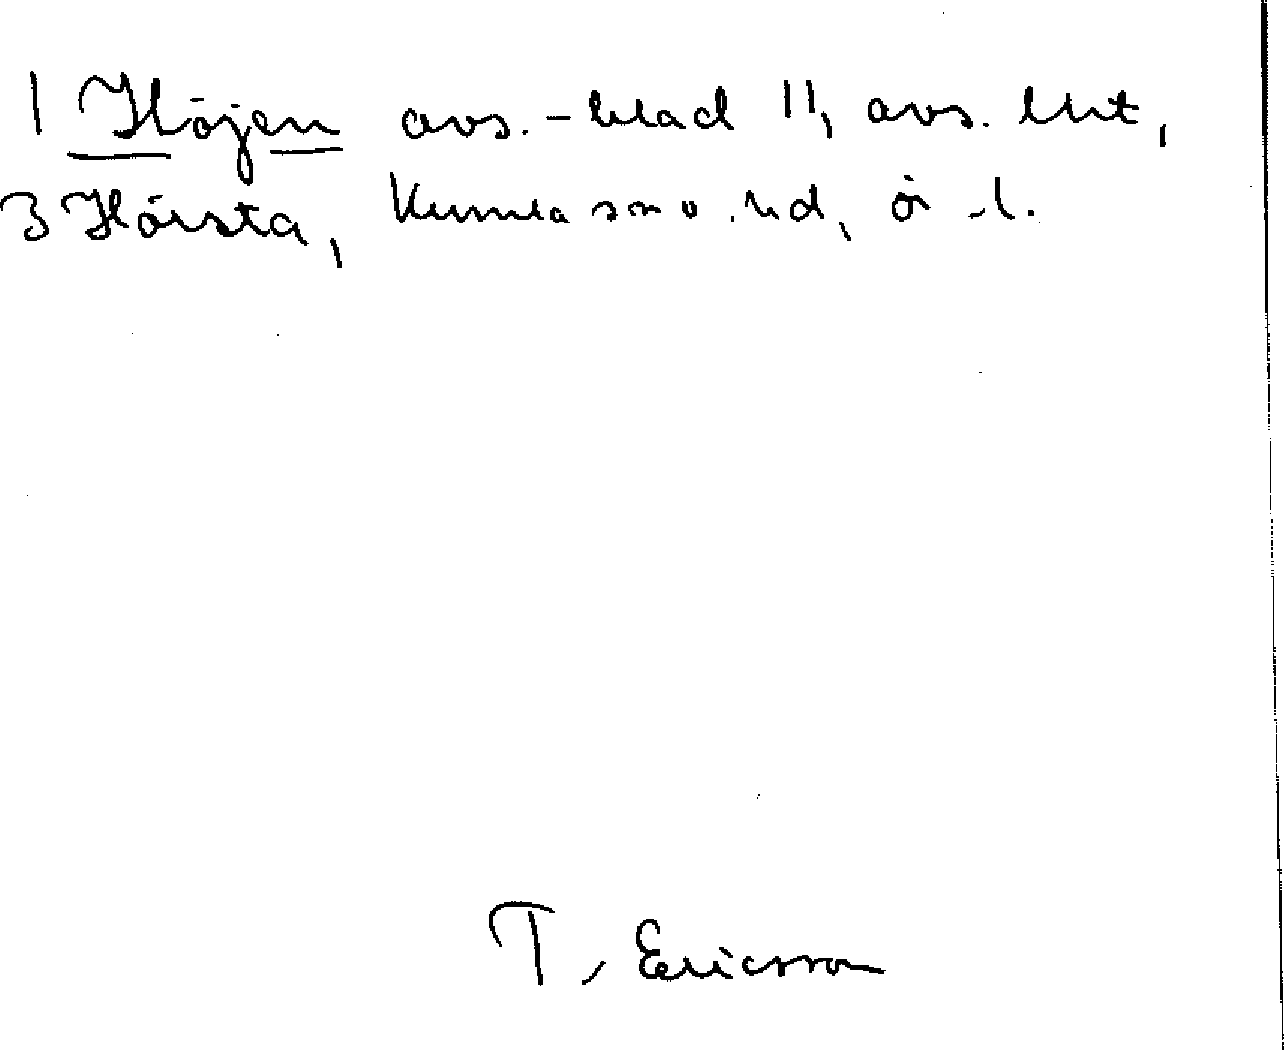 1 Höjen avs.-blad 11, avs. litt,
3 Hörsta, Kumla sn o. hd, ö .l.
T. Ericsson